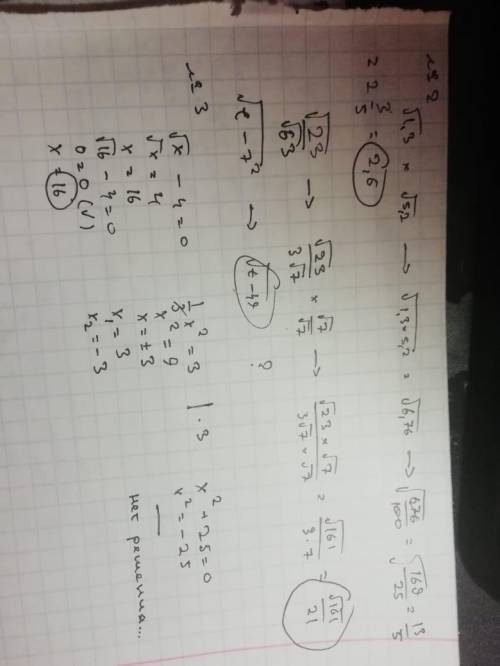 № 2
√1,3 × √5,2 → √1,3×5,2 = √6,76 → √676/100 = √169/25 = 13/5
= 2 3/5 = 2,6
√23/√63 → √23/3√7 × √7/√7 → √23×√7/3√7×√7 = √161/3·7 = √161/21
√t-7² → √t-49 ?
№ 3
√x - 4 = 0
√x = 4
x = 16
√16 - 4 = 0
0 = 0 (√)
x = 16
1/3 x² = 3 | · 3
x² = 9
x = ±3
x₁ = 3
x₂ = -3
x² + 25 = 0
x² = -25
—
нет решения...